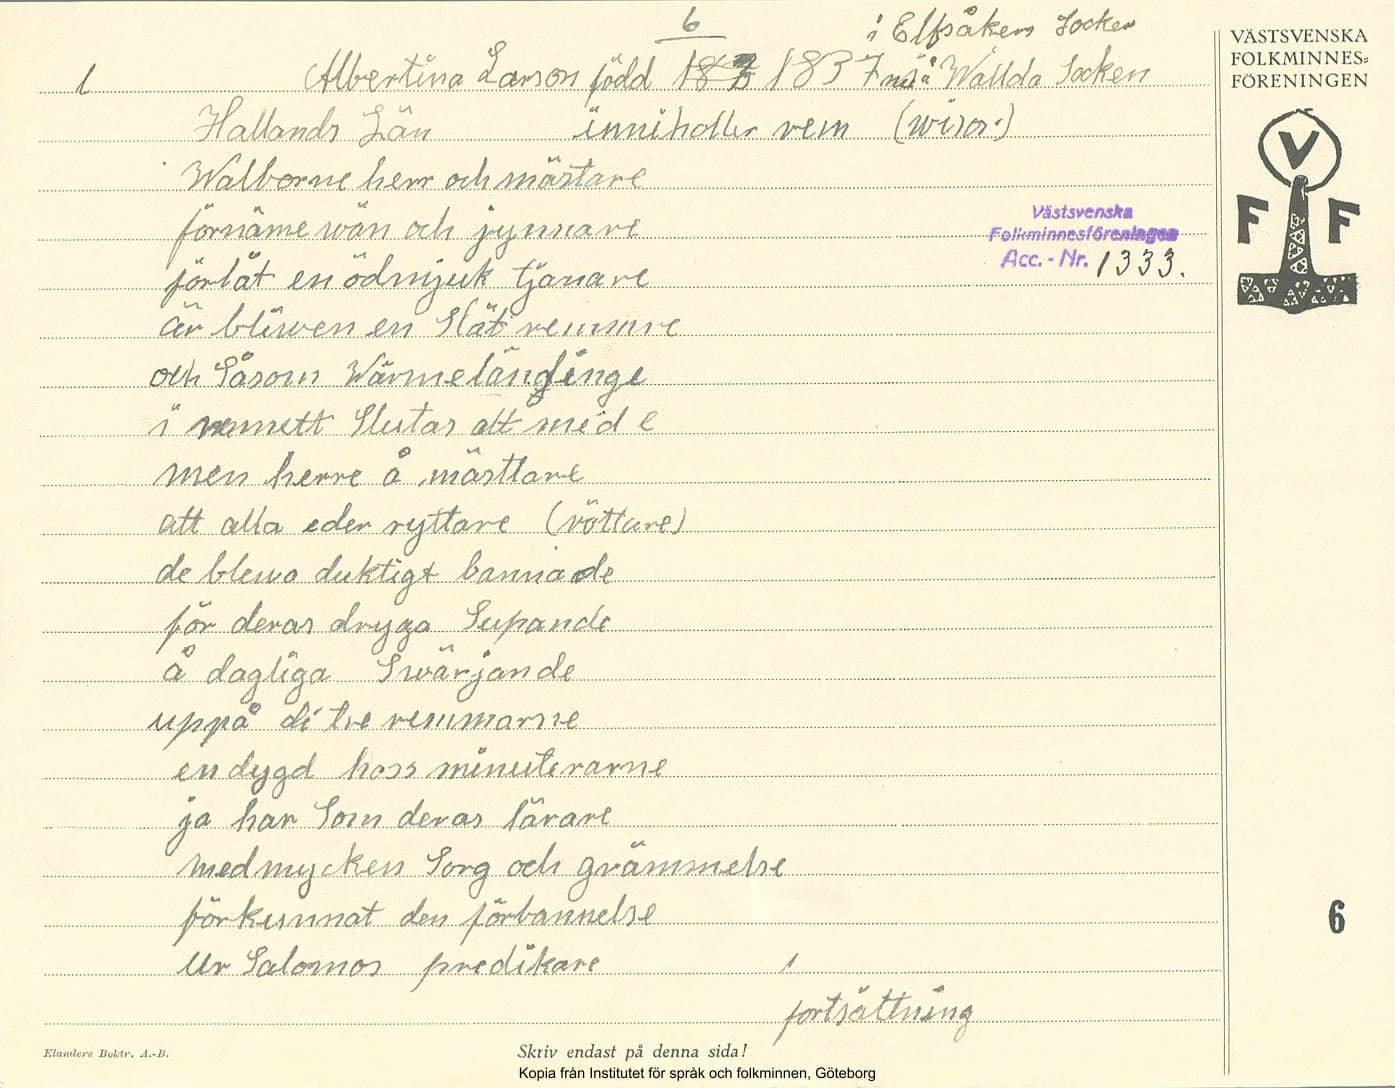 6
i Elfsåkers Socken
1 Albertina Larson född 1837 Wallda Socken
Hallands Län inniholler vem (wisor)
Walborne herr och mästare
förnäme wän och jynnare
förlåt en ödmjuk tjänare
är bliwen en Slät remmare
och Såsom Wärmelänginge
i remmett Slutas alt med e
men herre å mästtare
att alla eder ryttare (röttare)
de blewo duktigt bannade
för deras dryga Supande
å dagliga Swärjande
uppå di tre remmarne
en dygd hoss minuterarne
ja har Som deras lärare
med mycken Sorg och grämmelse
förkunnat den förbannelse
Ur Salomos predikare 1
fortsättning
VÄSTSVENSKA
FOLKMINNES-
FÖRENINGEN
V
F F
Västsvenska
Folkminnesföreningen
Acc.-Nr. 1333.
6
Elanders Boktr. A.-B.
Skriv endast på denna sida!
Kopia från Institutet för språk och folkminnen, Göteborg